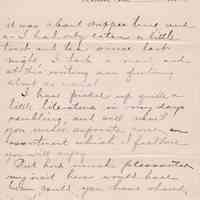 it was about supper time and
as I had only eaten a little
lunch and
night I took a meal and
at this writing am feeling
about as usual.
I have picked up quite a
little literature in my days
rambling, and will
you under separate cover an
assortment which I
you will enjoy.
But how much pleasanter
my visit here would have
been could you have shared